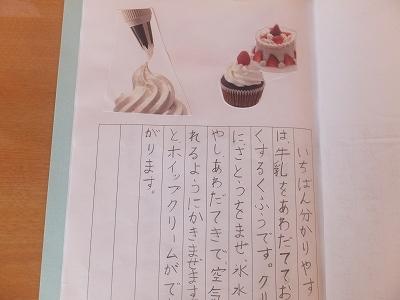 いちばん分かりやす
は、牛乳をあわだててお
くするくふうです。ク
にさとうをまぜ、氷水
やしあわだてきで、空気
れるようにかきまぜます
とホイップクリームがで
がります。